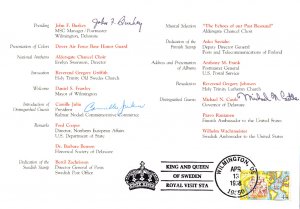 Presiding John F. Brinley
MSC Manager - Postmaster
Wilmington, Delaware
Presentation of Colors Dover Air Force Base Honor Guard
National Anthems Aldersgate Chancel Choir
Invocation Reverend Gregory Griffith
Holy Trinity, Old Swedes Church
Welcome Daniel S. Frawley
Mayor of Wilmington
Introduction of Distinguished Guests
President
Kalmar Nyckel Commemorative Committee
Remarks Fred Cooper
Director, Northern European Affairs
U.S. Department of State
Dr. Barbara Benson
Historical Society of Delaware
Dedication of the Swedish Stamp
Director General of Posts
Swedish Post Office
Musical Selection "The Echoes of our Past Resound"
Aldersgate Chancel Choir
Dedication of the Finnish Stamp
Deputy Director General
Posts and Telecommunications of Finland
Address and Presentation of Albums Anthony M. Frank
Postmaster General
U.S. Postal Service
Benediction Reverend Gregory Johnsen
Holy Trinity, Lutheran Church
Distinguished Guests Michael N. Castle
Governor of Delaware
Finnish Ambassador to the United States
Wilhelm Wachtmeister
Swedish Ambassador to the United States
KING AND QUEEN
OF SWEDEN
ROYAL VISIT STA
WILMINGTON, DE
APR
1988